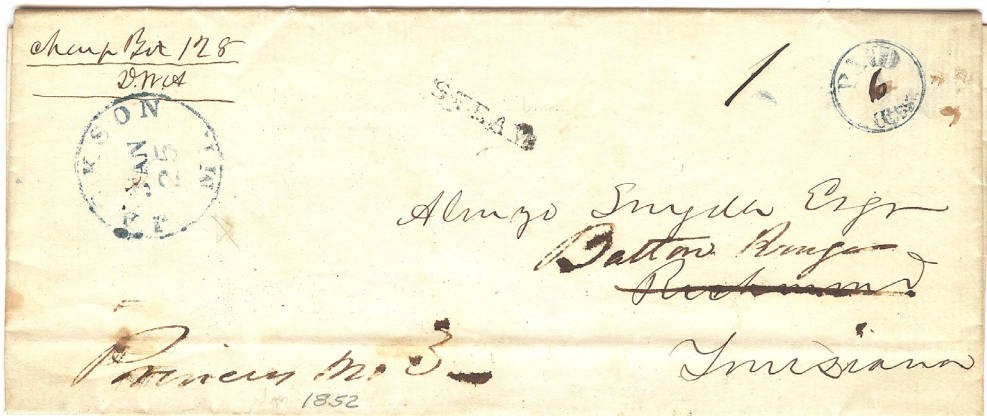 Charge Box 128
D.W.A
KSON
JAN
25
STEAM
1
PAID
6
Alonzo Snyder Esqr
Batton Rouge
Richmond
Louisiana
Princess No. 3
1852